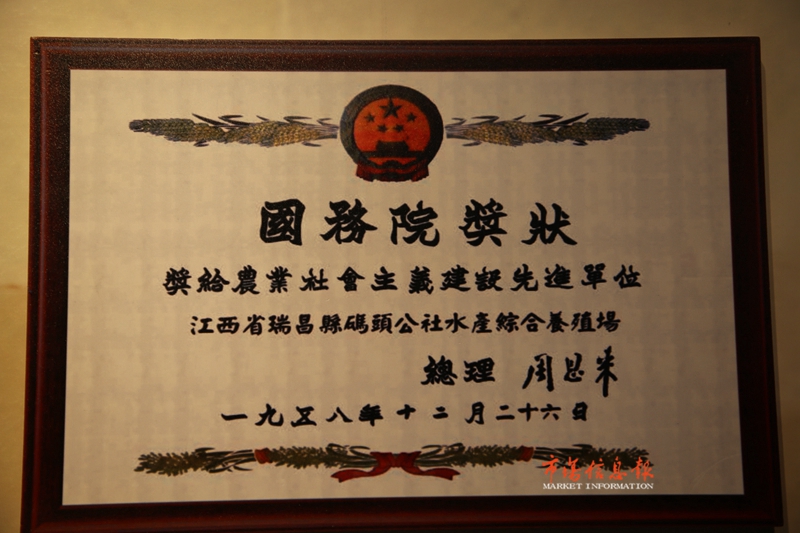 國務院獎狀
獎給農業社會主義建設先進單位
江西省瑞昌縣碼頭公社水產綜合養殖場
總理 周恩來
一九五八年十二月二十六日
市场信息报
MARKET INFORMATION